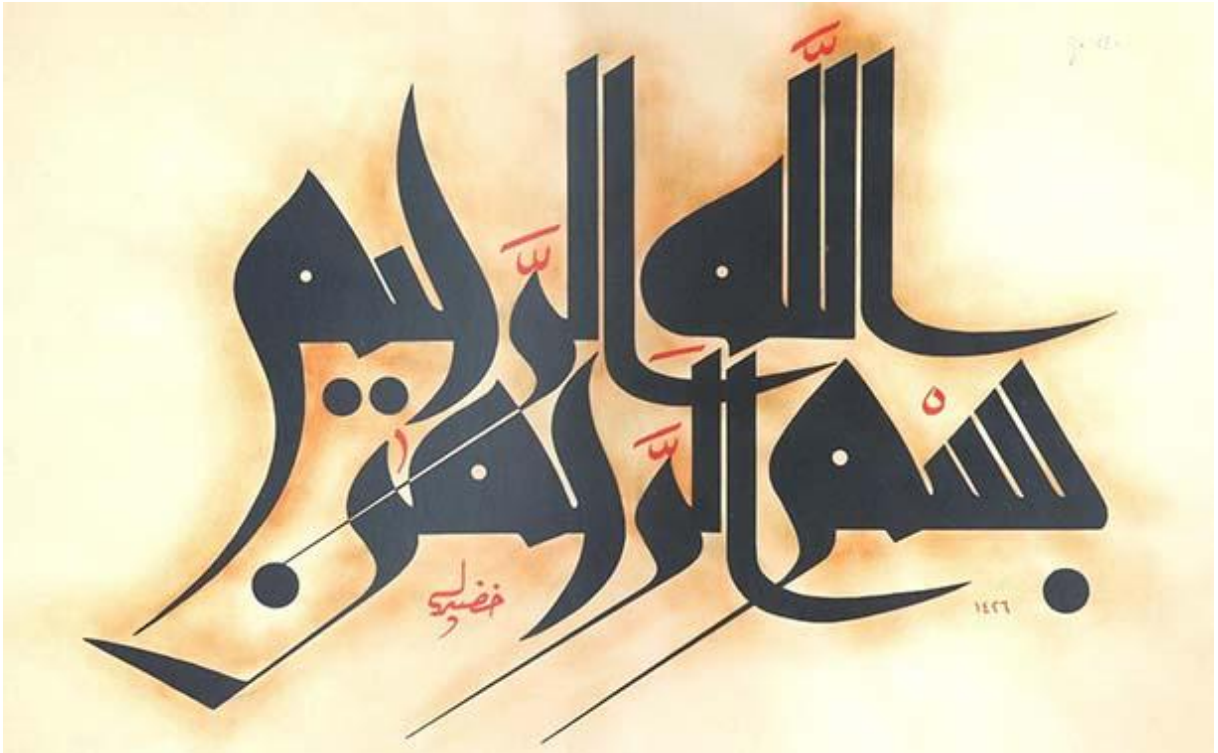 بِسْمِ اللَّهِ الرَّحْمَٰنِ الرَّحِيمِ
١٤٢٦